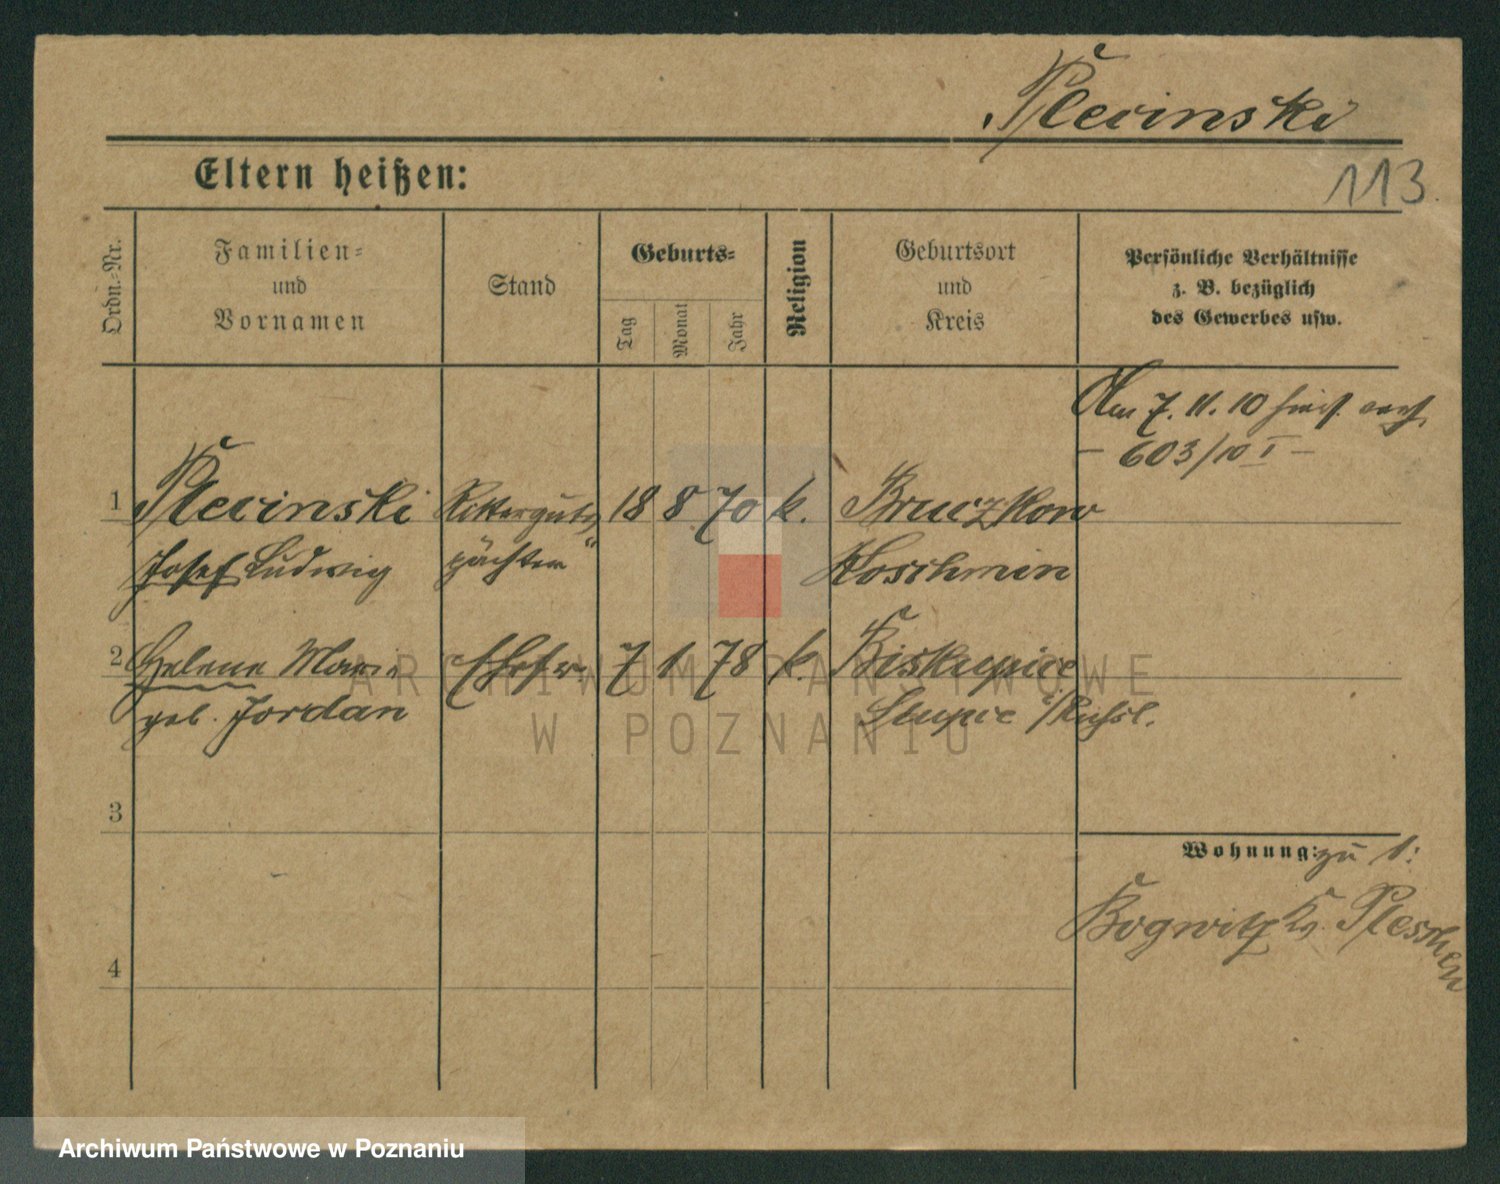 Plecinski
113.
Eltern heißen:
Ordn.-Nr.
Familien-
und
Vornamen
Stand
Geburts-
Tag
Monat
Jahr
Religion
Geburtsort
und
Kreis
Persönliche Verhältnisse
z. B. bezüglich
des Gewerbes usw.
Am 7. 11. 10
– 603/10 I –
1 Plecinski Ritterguts 18 8 70 k. Bruczkow
Josef Ludwig pächter Koschmin
2 Helene Marie Ehefr. 7 1 78 k. Biskupice
geb. Jordan i/Rußl.
3
Wohnung: zu 1:
Bogwitz Kr. Pleschen
4
ARCHIWUM PAŃSTWOWE
W POZNANIU
Archiwum Państwowe w Poznaniu